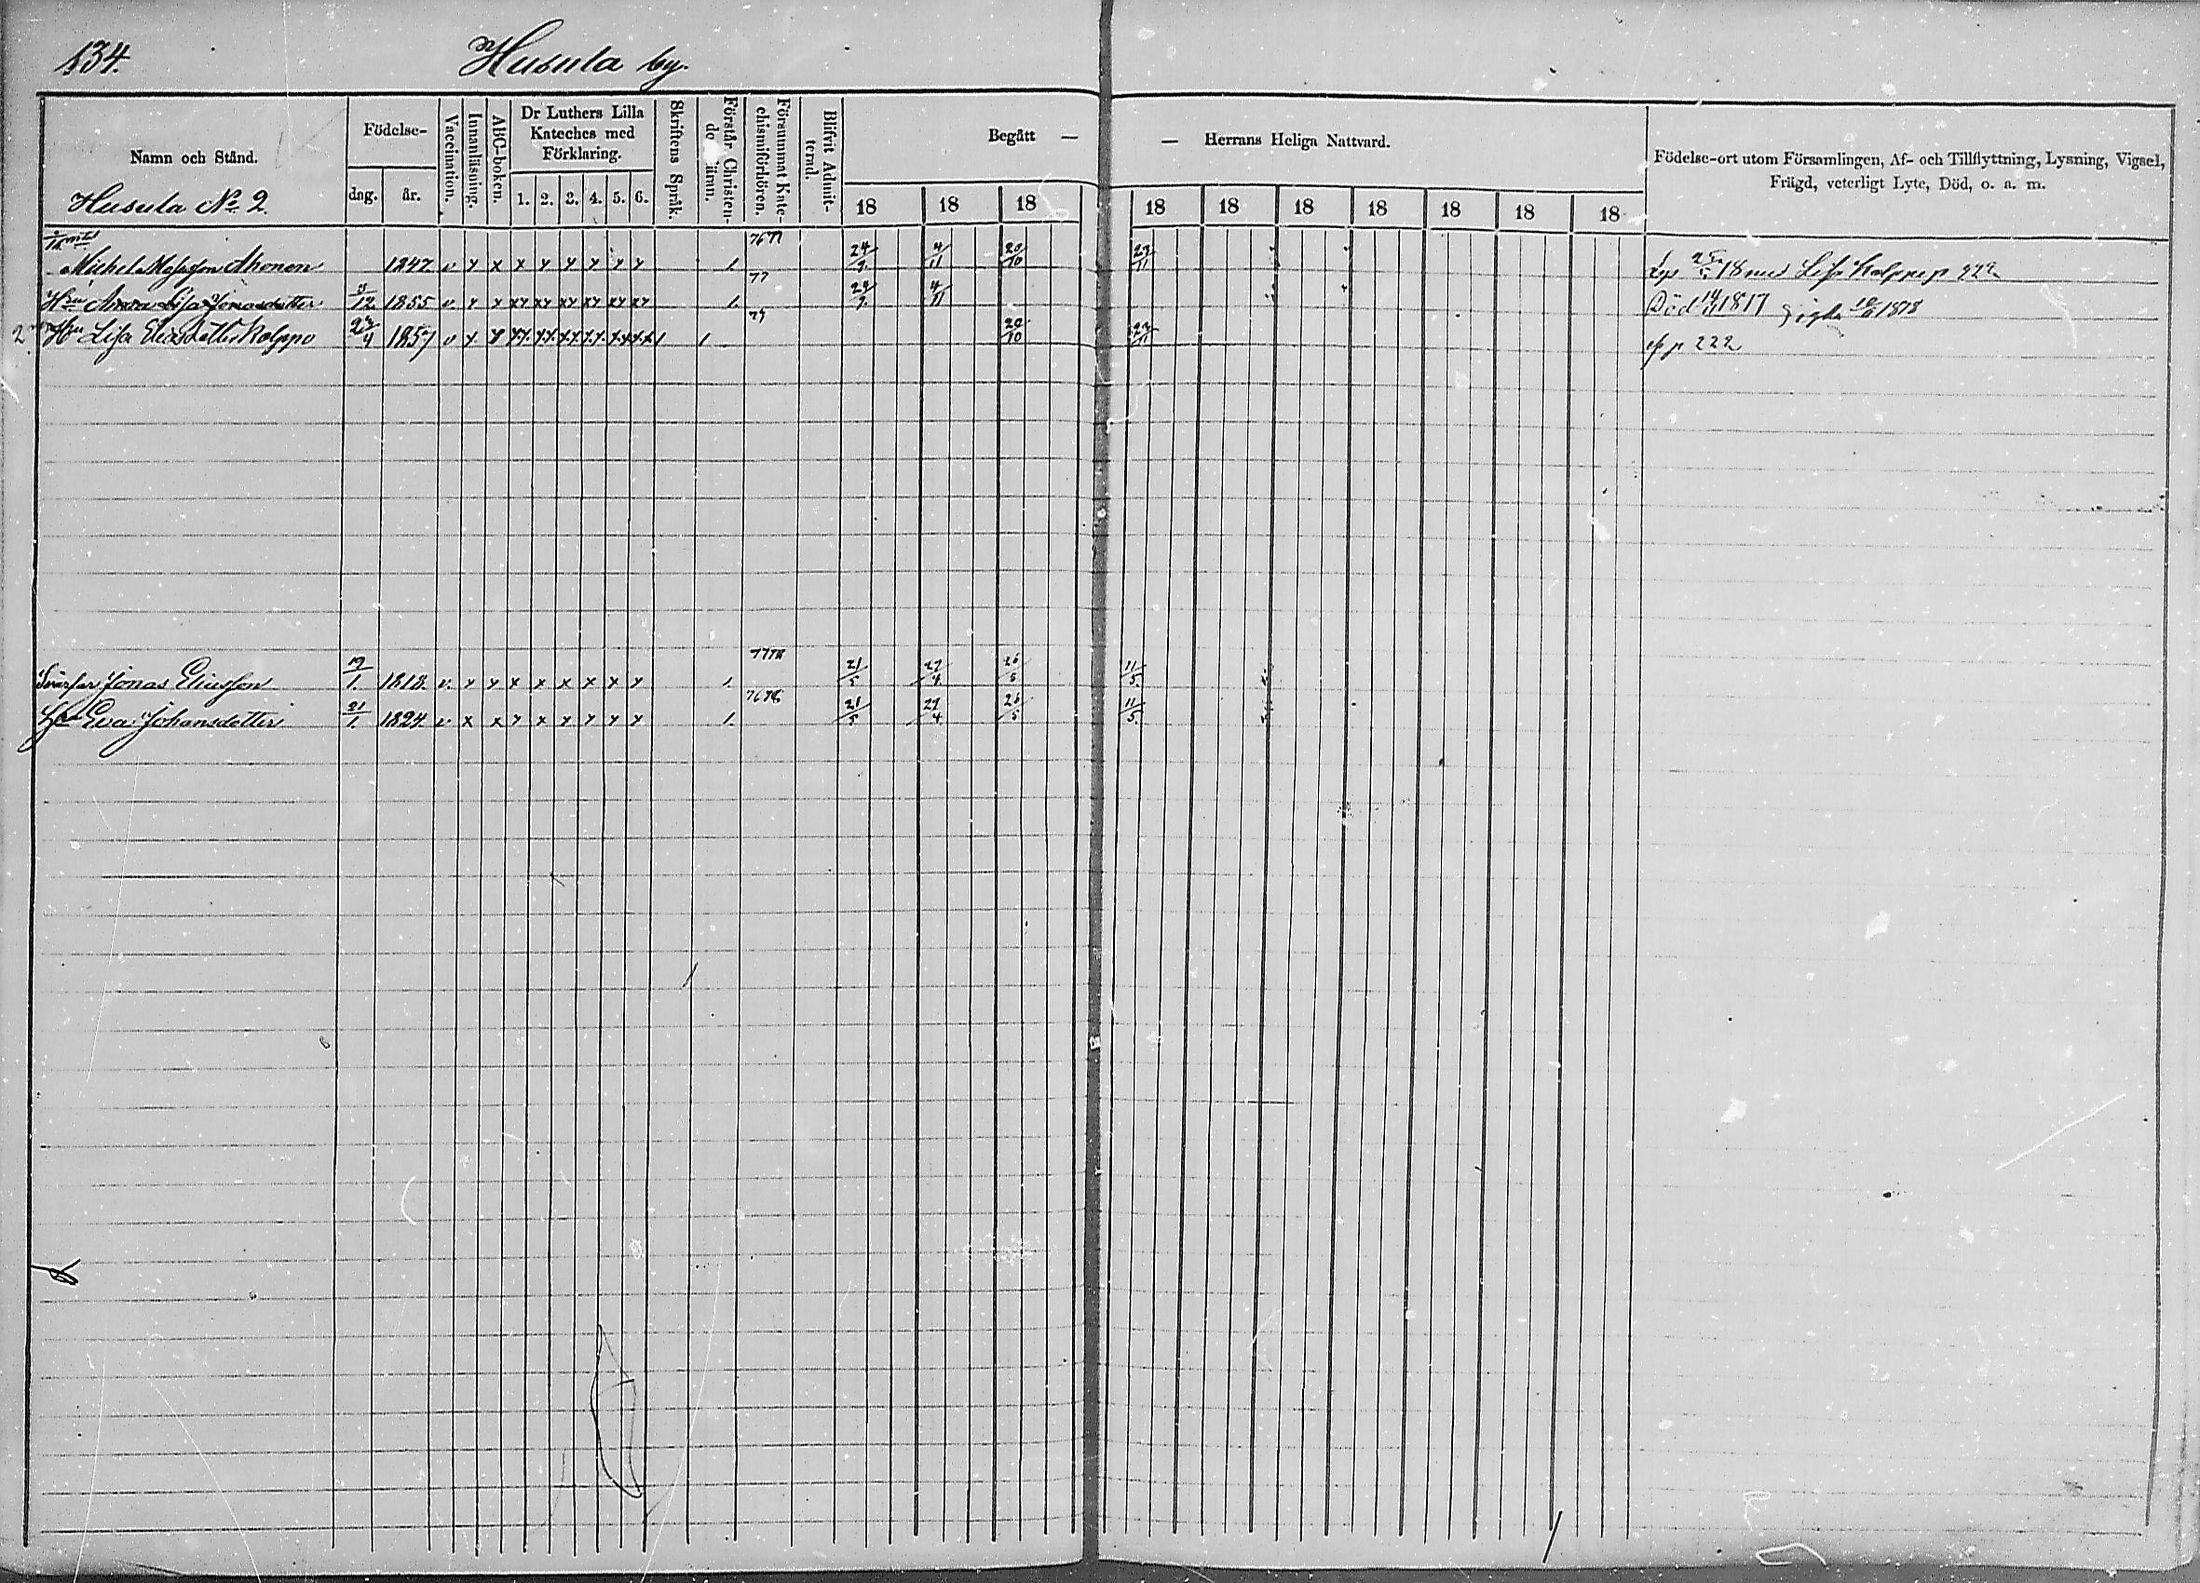 134.
Husula by.
Namn och Stånd.
Husula No 2.
Födelse-
dag. år.
Vaccination.
Innanläsning.
ABC-boken.
Dr Luthers Lilla
Kateches med
Förklaring.
1. 2. 3. 4. 5. 6.
Skriftens Språk.
Förstår Christen-
do
Försummat Kate-
chismiförhören.
Blifvit Admit-
terad.
Begått —
18 18 18
— Herrans Heliga Nattvard.
18 18 18 18 18 18 18
Födelse-ort utom Församlingen, Af- och Tillflyttning, Lysning, Vigsel,
Frägd, veterligt Lyte, Död, o. a. m.
76 77
Michel Ahonen 1847 v y x x y y y y y 1. 24/9. 4/11 20/10 23/11 18 med Lisa Kolppo p 222
77
Hru Anna Lisa Jonasdotter 12 1855 v. y x xy xy xy xy xy xy 1. 24/9. 4/11 Död 14/11 1817 1878
Hru Lisa Eliasdotter Kolppo 23/4 1857 v y. 1 20/10 23/11 p 222
77 78
Jonas Eliasson 19/1. 1818. v. y y x x x x x y 1. 21/5 27/4. 26/5 11/5.
76 78
Hru Eva Johansdotter 21/1. 1824. v x x y x y y y y 1. 21/5 27/4. 26/5 11/5.